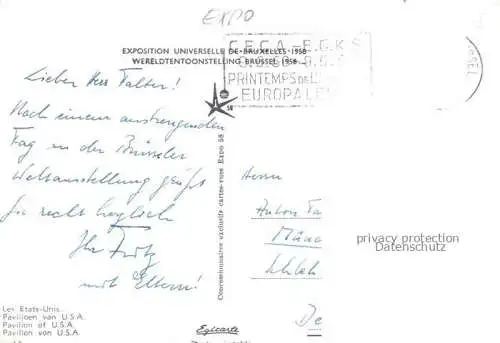 EXPO
EXPOSITION UNIVERSELLE DE BRUXELLES 1958
WERELDTENTOONSTELLING BRUSSEL 1958
C.E.C.A. - E.G.K.S
PRINTEMPS DE L'
EUROPALE
58
Lieber Herr Falter!
Nach einem anstrengenden
Tag in der Brüsseler
Weltausstellung grüßt
Sie recht herzlich
Ihr Fritz
mit Eltern!
Concessionnaire exclusif cartes-vues Expo 58
Herrn
Anton Fa
Münc
Schleh
De
privacy protection
Datenschutz
Les Etats-Unis.
Paviljoen van U.S.A.
Pavilion of U.S.A.
Pavilion von U.S.A.
Egicarte